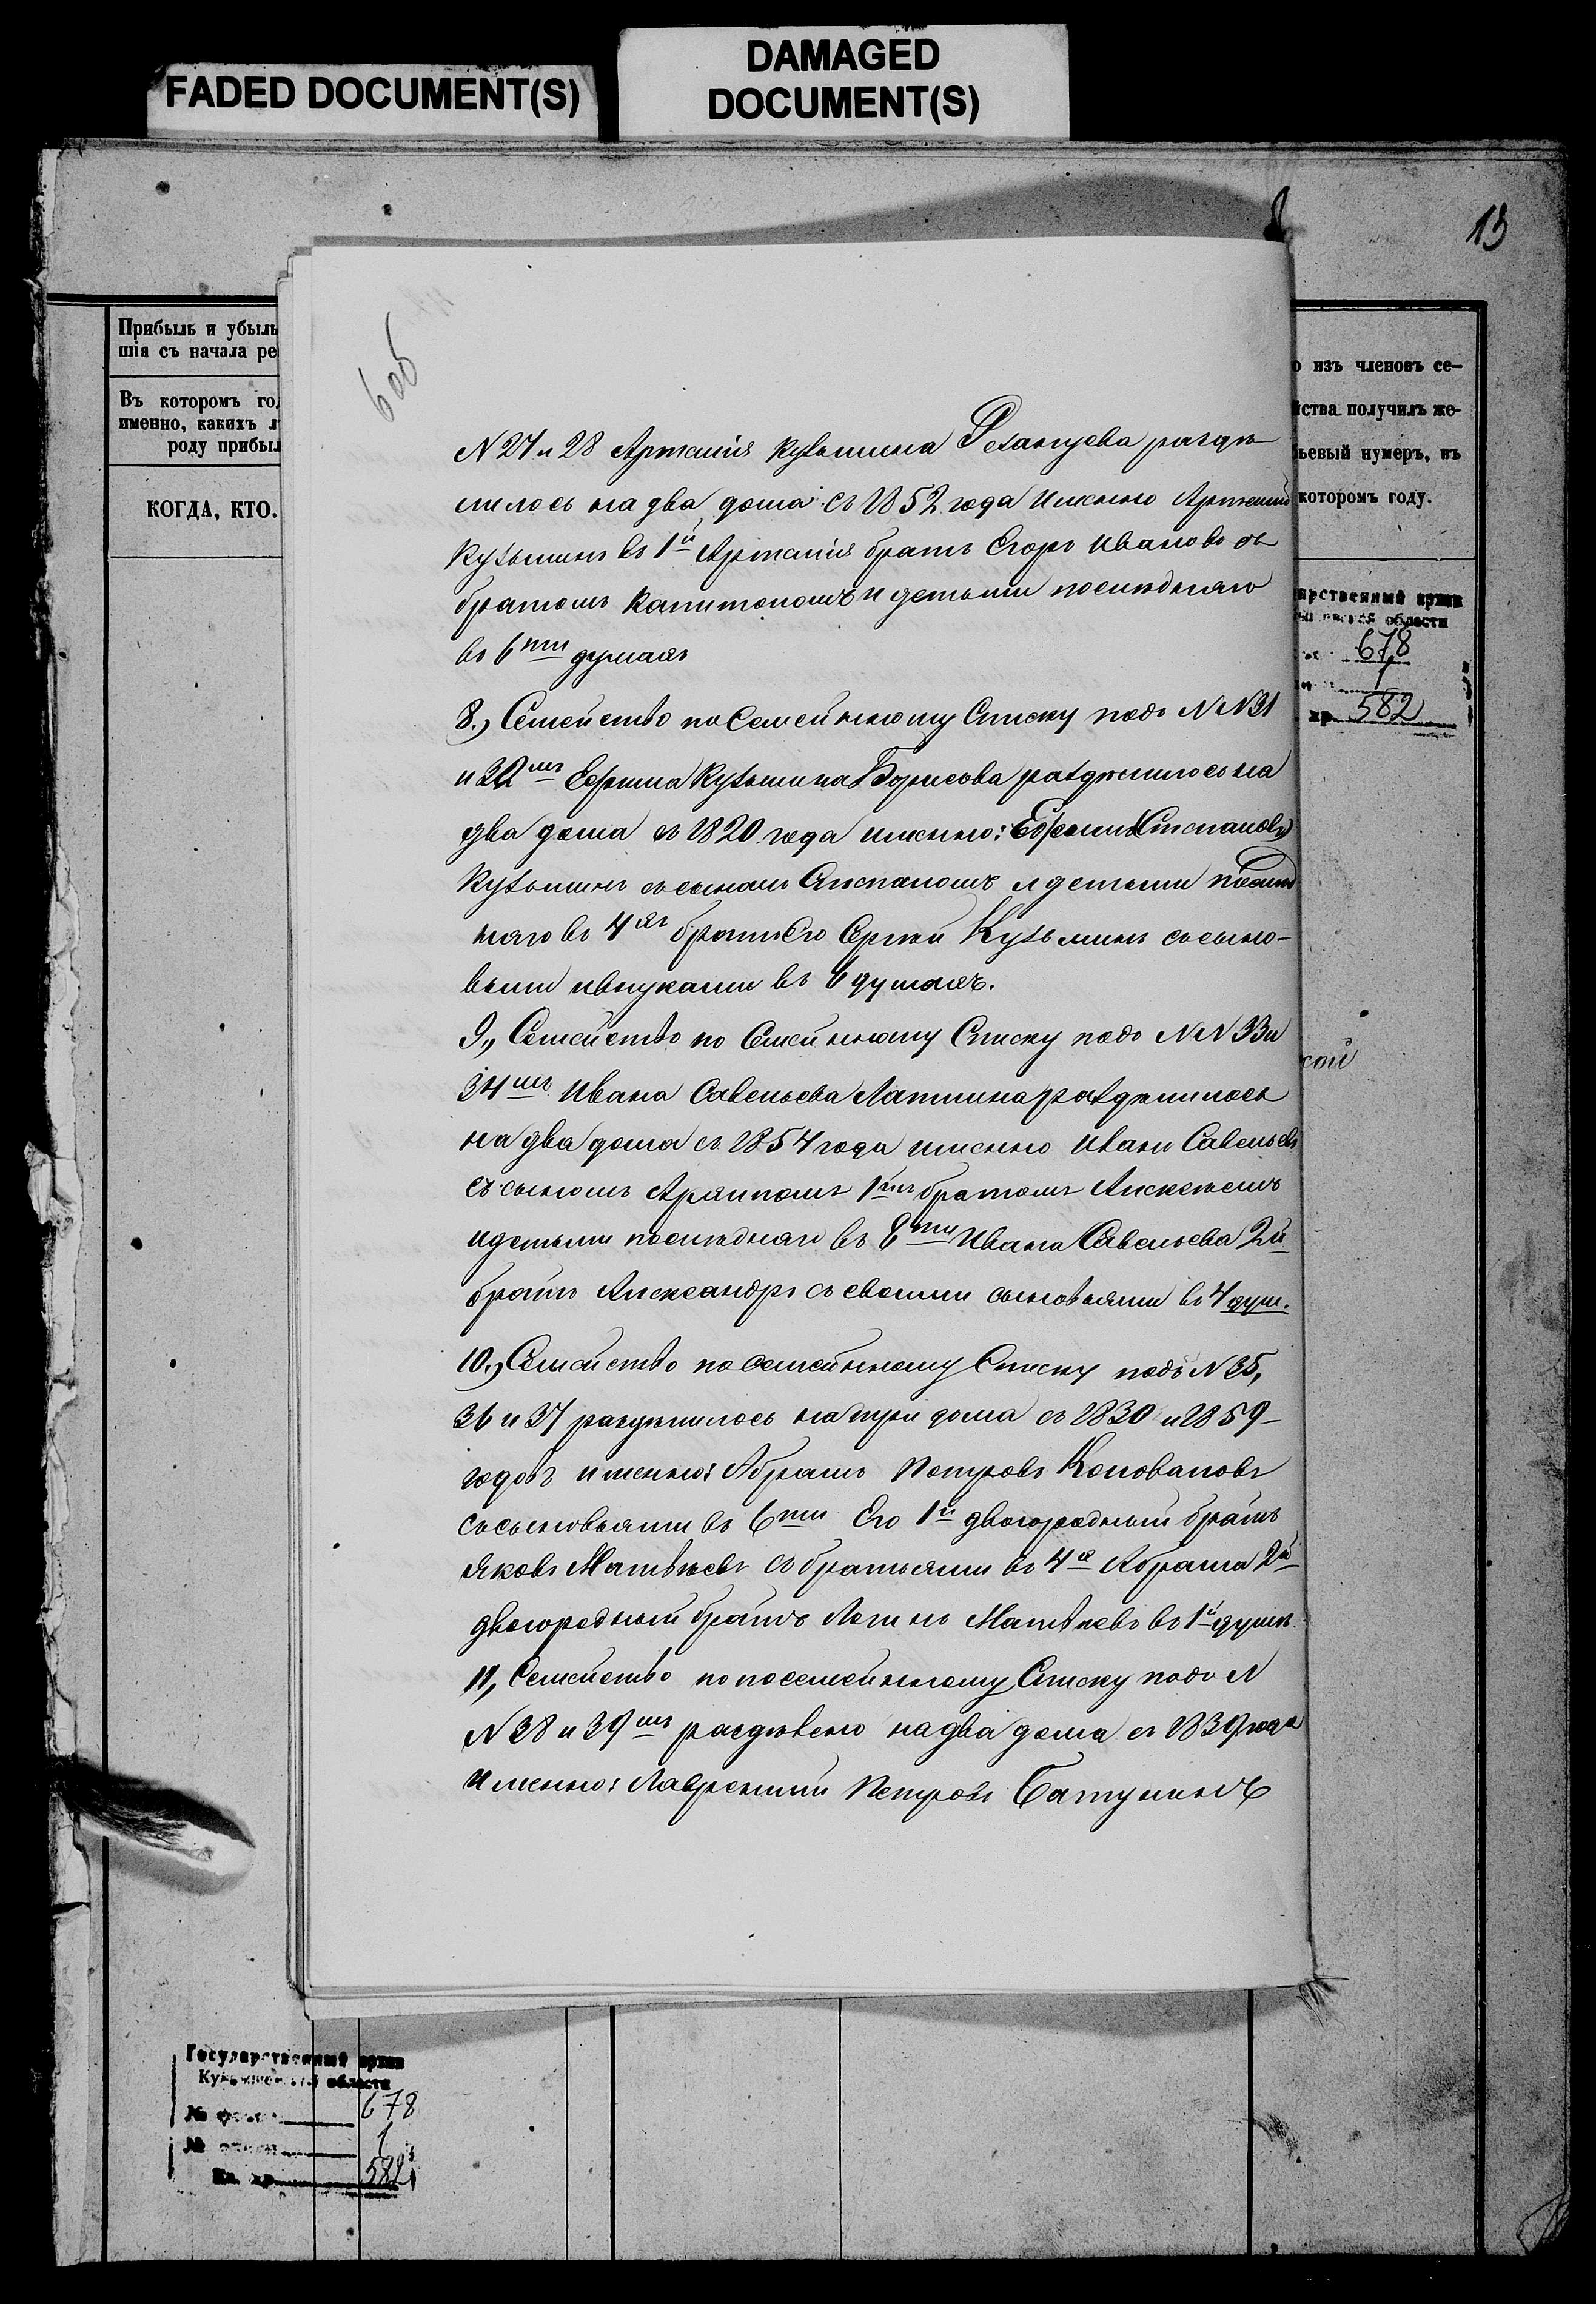 FADED DOCUMENT(S)
DAMAGED
DOCUMENT(S)
13
Прибыль и убыль
шія съ начала ре
Въ которомъ го
именно, какихъ л
роду прибыл
КОГДА, КТО.
о изъ членовъ се-
йства получилъ же-
ьевый нумеръ, въ
которомъ году.
арственный архив
области
678
1
хр. 582
N 27 и 28 Артамия Кузьмина раздѣ-
лилось на два дома съ 1852 года именно
Кузьминъ въ 1й Артамия братъ Егоръ Ивановъ съ
братомъ Капитономъ и детьми последняго
въ 6ти душахъ
8.) Семейство по Семейнному Списку подъ NN 31
и 32мъ Ефима Кузьмина Борисова раздѣлилось на
два дома съ 1820 года именно: Ефимъ Степановъ
Кузьминъ съ сыномъ Степаномъ и детьми
няго въ 4хъ братъ Его Сергѣй Кузьминъ съ сыно-
вьми и внуками въ 6 душахъ.
9., Семейство по Семейнному Списку подъ NN 33 и
34мъ Ивана Савельева Лапшина раздѣлилось
на два дома съ 1854 года именно Иванъ Савельевъ
съ сыномъ Архипомъ 1мъ братомъ Алексеемъ
и детьми последняго въ 8ми Ивана Савельева 2й
братъ Александръ съ своими сыновьями въ 4 душ.
10.) Семейство по семейнному Списку подъ N 35,
36 и 37 раздѣлилось на три дома съ 1830 и 1859-
годовъ именно: Абрамъ Петровъ Коноваловъ
съ сыновьями въ 6ти Его 1й двоюродный братъ
Яковъ Матвѣевъ съ братьями въ 4х Абрама 2й
двоюродный братъ Логинъ Матвѣевъ въ 1й душѣ.
11, Семейство по посемейнному Списку подъ N
N 38 и 39мъ раздѣлено на два дома съ 1839 года
именно: Лаврентий Петровъ Батунинъ
Государственный архив
Куйбышевской области
№ фонда 678
№ описи 1
Ед. хр. 582